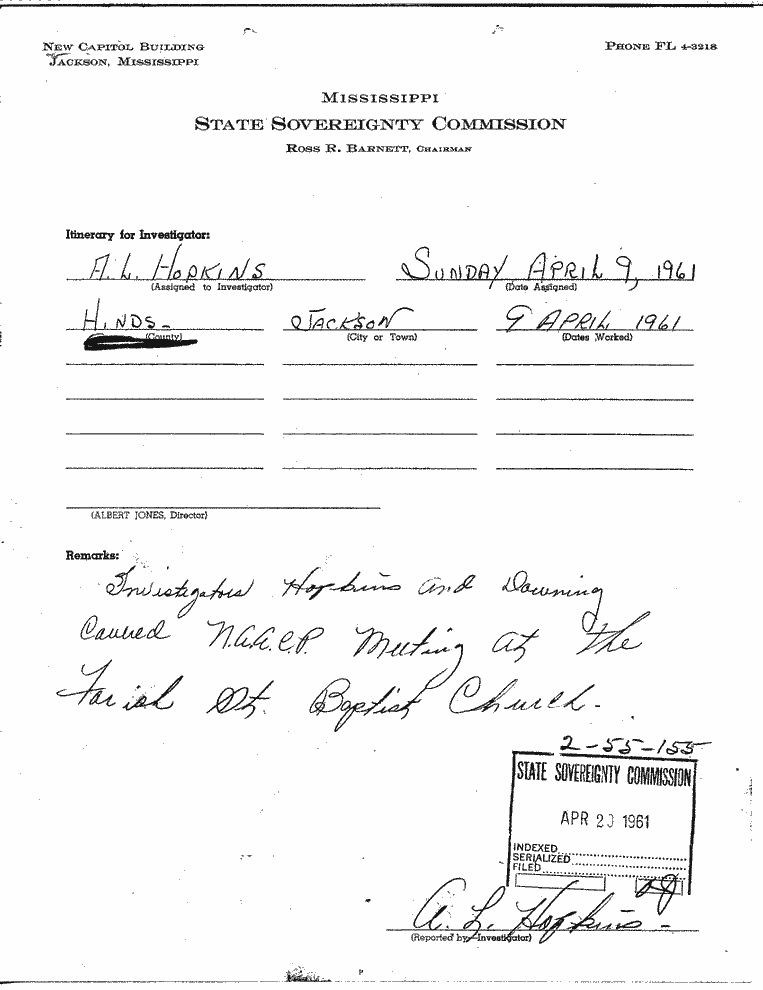 NEW CAPITOL BUILDING
JACKSON, MISSISSIPPI
PHONE FL 4-3218
MISSISSIPPI
STATE SOVEREIGNTY COMMISSION
ROSS R. BARNETT, CHAIRMAN
Itinerary for Investigator:
A. L. HOPKINS SUNDAY APRIL 9, 1961
(Assigned to Investigator) (Date Assigned)
HINDS- JACKSON 9 APRIL 1961
(County) (City or Town) (Dates Worked)
(ALBERT JONES, Director)
Remarks:
Investigators Hopkins and Downing
Covered N.A.A.C.P. Meeting at the
Farish St. Baptist Church-
2-55-155
STATE SOVEREIGNTY COMMISSION
APR 20 1961
INDEXED
SERIALIZED
FILED
A. L. Hopkins -
(Reported by Investigator)